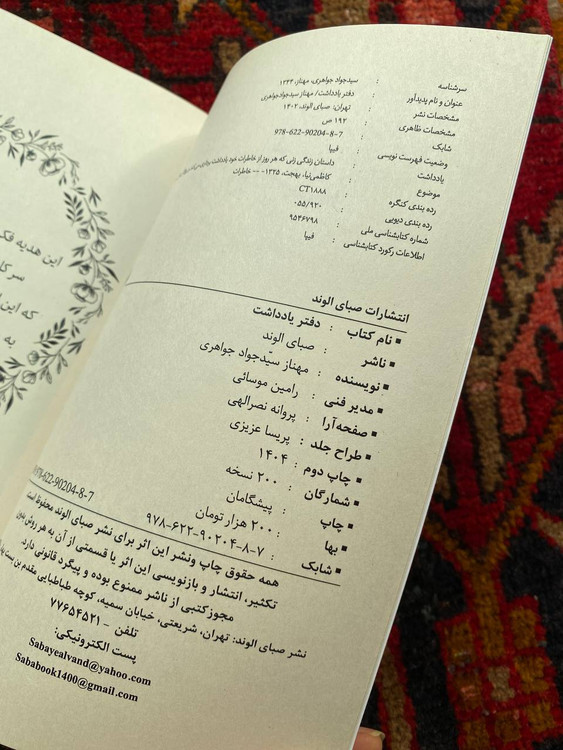 سرشناسه : سیدجواد جواهری، مهناز، ۱۳۴۴
عنوان و نام پدیدآور : دفتر یادداشت/ مهناز سیدجوادجواهری
مشخصات نشر : تهران: صبای الوند، ۱۴۰۲
مشخصات ظاهری : ۱۹۲ ص
شابک : 978-622-90204-8-7
وضعیت فهرست نویسی : فیپا
یادداشت : داستان زندگی زنی که هر روز از خاطرات خود یادداشت
موضوع : کاظمی‌نیا، بهجت، ۱۳۲۵- -- خاطرات
رده بندی کنگره : CT۱۸۸۸
رده بندی دیویی : ۹۲۰/۰۵۵
شماره کتابشناسی ملی : ۹۵۴۶۷۹۸
اطلاعات رکورد کتابشناسی : فیپا
انتشارات صبای الوند
▪ نام کتاب : دفتر یادداشت
▪ ناشر : صبای الوند
▪ نویسنده : مهناز سیّدجواد جواهری
▪ مدیر فنی : رامین موسائی
▪ صفحه‌آرا : پروانه نصرالهی
▪ طراح جلد : پریسا عزیزی
▪ چاپ دوم : ۱۴۰۴
▪ شمارگان : ۲۰۰ نسخه
▪ چاپ : پیشگامان
▪ بها : ۲۰۰ هزار تومان
▪ شابک : ۹۷۸-۶۲۲-۹۰۲۰۴-۸-۷
978-622-90204-8-7
همه حقوق چاپ ونشر این اثر برای نشر صبای الوند محفوظ است
تکثیر، انتشار و بازنویسی این اثر یا قسمتی از آن به هر روش بدون
مجوزکتبی از ناشر ممنوع بوده و پیگرد قانونی دارد.
نشر صبای الوند: تهران، شریعتی، خیابان سمیه، کوچه طباطبایی مقدم، بن بست
تلفن – ۷۷۶۵۴۵۲۱
پست الکترونیکی:
Sabayealvand@yahoo.com
Sababook1400@gmail.com
این هدیه
سر
که این
به